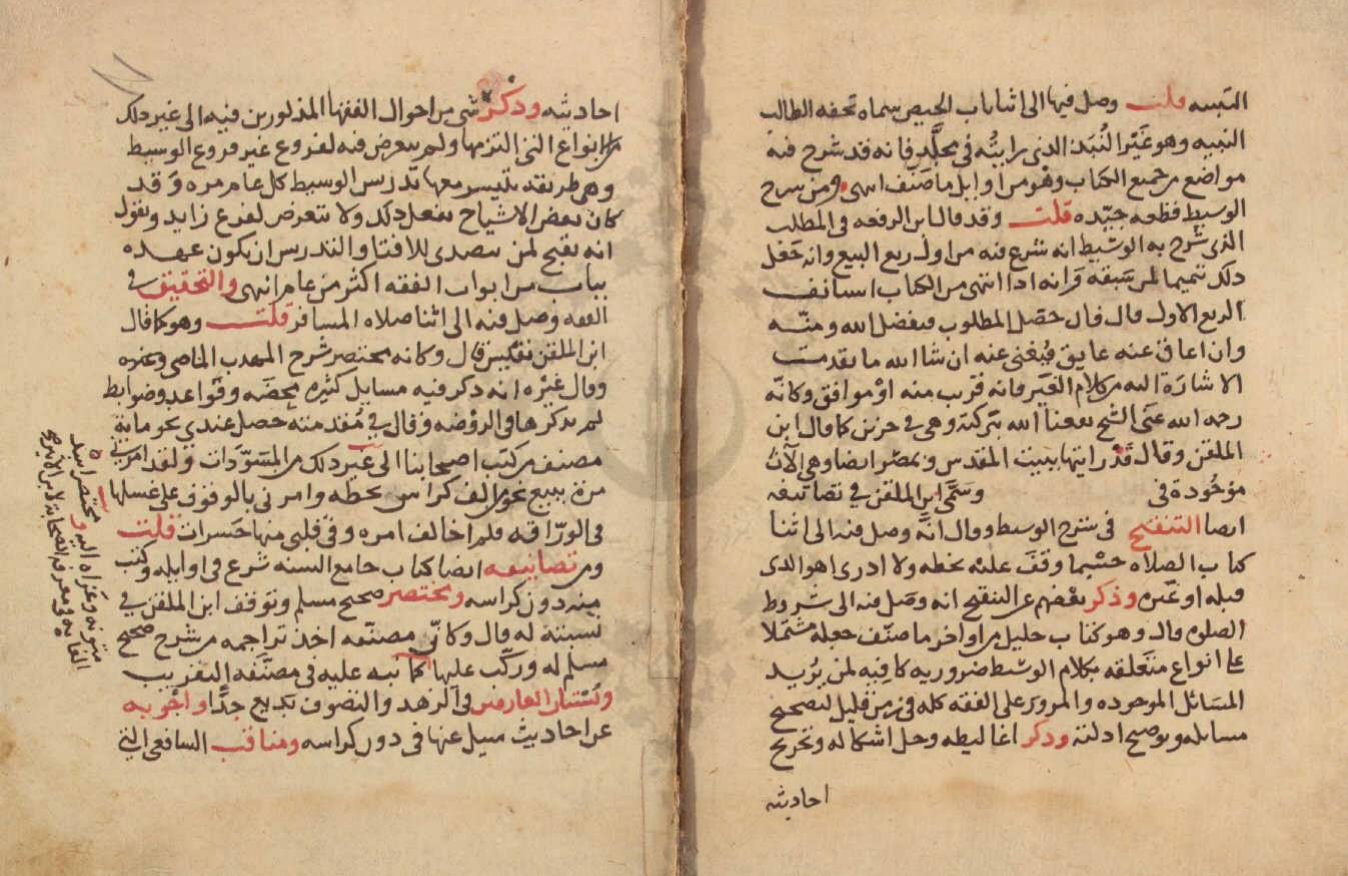 التنبيه قلت وصل فيها الى اثنا باب الحيض سماه تحفه الطالب
النبيه وهو غير النبذ الذى رايته فى مجلد فانه قد شرح فيه
مواضع من جميع الكتاب وهو من اوايل ما صنف انتهى ومن شرح
الوسيط قطعه جيده قلت وقد قال ابن الرفعه فى المطلب
الذى شرح به الوسيط انه شرع فيه من اول ربع البيع وانه جعل
ذلك تتميما لمن سبقه وانه اذا انتهى من الكتاب استانف
الربع الاول قال فان حصل المطلوب فبفضل الله ومنته
وان اعاق عنه عايق فيغنى عنه ان شا الله ما تقدمت
الاشارة اليه من كلام الغير فانه قريب منه او موافق وكانه
رحمه الله عنى الشيخ نفعنا الله ببركته وهى فى جزين كما قال ابن
الملقن وقال قد رايتها ببيت المقدس وبمصر ايضا وهى الآن
موجودة فى وسمى ابن الملقن فى تصانيفه
ايضا التنقيح فى شرح الوسيط وقال انه وصل فيه الى اثنا
كتاب الصلاه حسبما وقف عليه بخطه ولا ادرى اهو الذى
قبله او غيره وذكر بعضهم عن التنقيح انه وصل فيه الى شروط
الصلوه قال وهو كتاب جليل من اواخر ما صنف جعله مشتملا
على انواع متعلقه بكلام الوسيط ضروريه كافيه لمن يريد
المسائل الموجوده والمرور على الفقه كله فى زمن قليل لتصحيح
مسايله وتوضيح ادلته وذكر اغاليطه وحل اشكاله وتخريج
احاديثه
احاديثه وذكر شى من احوال الفقها المذكورين فيه الى غير ذلك
من الانواع التى التزمها ولم يتعرض فيه لفروع غير فروع الوسيط
وهى طريقه يتيسر معها تدريس الوسيط كل عام مره وقد
كان بعض الاشياخ يفعل ذلك ولا يتعرض لفرع زايد ويقول
انه يقبح لمن يتصدى للافتا والتدريس ان يكون عهده
بباب من ابواب الفقه اكثر من عام انتهى والتحقيق فى
الفقه وصل فيه الى اثنا صلاه المسافر قلت وهو كما قال
ابن الملقن نفيس قال وكانه مختصر شرح المهذب الماضى وغيره
وقال غيره انه ذكر فيه مسايل كثيره محضه وقواعد وضوابط
لم يذكرها فى الروضه وقال فى مقدمته حصل عندى نحو ماية
مصنف من كتب اصحابنا الى غير ذلك من المسودات ولقد امرنى
مرة ببيع نحو الف كراس بخطه وامرنى بالوقوف على غسلها
فى الوراقه فلم اخالف امره وفى قلبى منها حسرات قلت
ومن تصانيفه ايضا كتاب جامع السنه شرع فى اوايله وكتب
منه دون كراسه ومختصر صحيح مسلم وتوقف ابن الملقن فى
نسبته له قال وكان مصنفه اخذ تراجمه من شرح صحيح
مسلم له وركب عليها كما نبه عليه فى مصنفه التقريب
وبستان العارفين فى الزهد والتصوف بديع جدا واجوبه
عن احاديث سيل عنها فى دون كراسه ومناقب الشافعى التى
مختصر اسد
الغابه فى معرفه الصحابة لابن الاثير